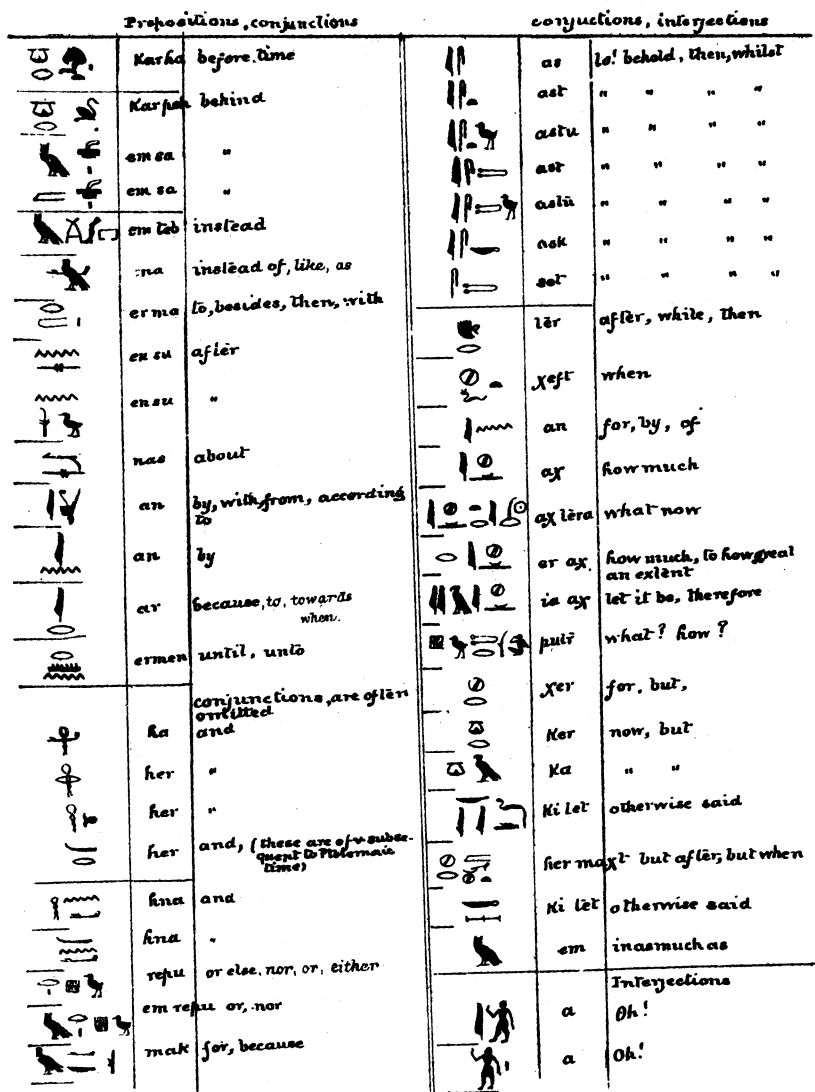 Prepositions, conjunctions
Karha before, time
Karpeh behind
em sa "
em sa "
em teb instead
ma instead of, like, as
erma to, besides, then, with
en su after
ensu "
nas about
an by, with, from, according
to
an by
ar because, to, towards
when.
ermen until, unto
conjunctions, are often
omitted
ha and
her "
her "
her and, (these are of subse-
quent to Ptolemaic
time)
hna and
hna "
repu or else, nor, or, either
em repu or, nor
mak for, because
conjuctions, interjections
as lo! behold, then, whilst
ast " " " "
astu " " " "
ast " " " "
astu " " " "
ask " " " "
set " " " "
ter after, while, then
χeft when
an for, by, of
aχ how much
aχ tera what now
er aχ how much, to how great
an extent
ia aχ let it be, therefore
putr what? how?
χer for, but,
Ker now, but
Ka " "
Ki tet otherwise said
her maχt but after, but when
Ki tet otherwise said
em inasmuch as
Interjections
a Oh!
a Oh!